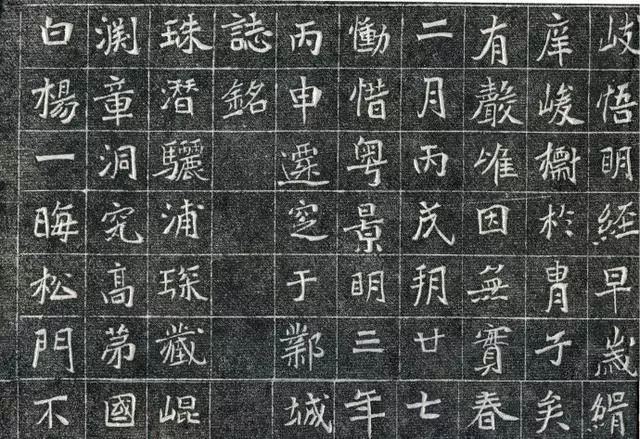 岐悟明經早歲緝
庠峻於胄子矣
有唯因無實春
二月丙戌朔廿七
慟惜粵景明三年
丙申遷窆于鄴城
誌銘
珠潛驪浦琛藏崐
渊章洞究高第國
白楊一晦松門不